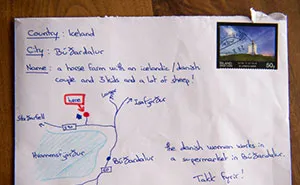 Country : Iceland
City : Búðardalur
Name : a horse farm with an icelandic/danish
couple and 3 kids and a lot of sheep!
here
Ísafjörður
Hvammsfjörður
Búðardalur
the danish woman works in
a supermarket in Búðardalur.
Takk fyrir!